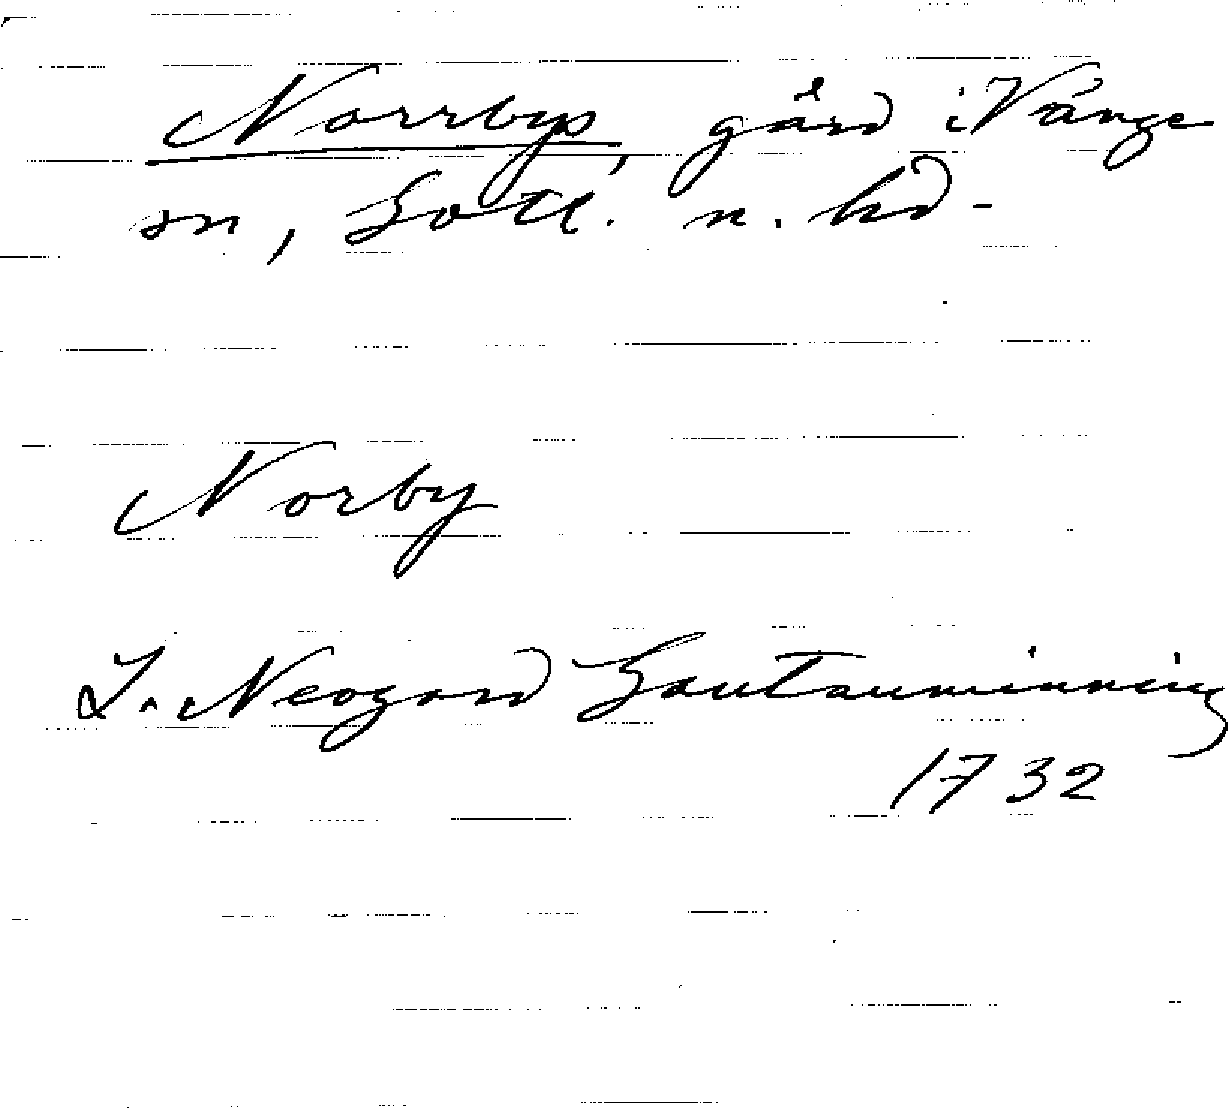 Norrbys, gård i Vänge
sn, Gotl. n. hd.
Norby
L. Neogard Gautauminning
1732